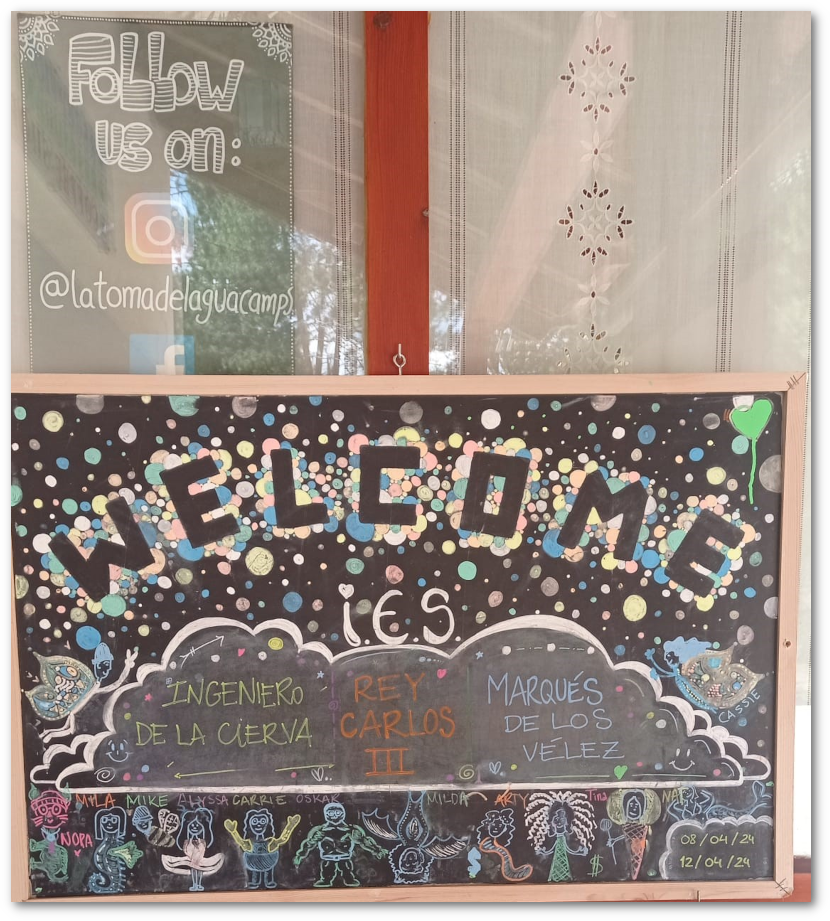 Follow
us on:
@latomadelaguacamps
f
WELCOME
I.E.S
INGENIERO
DE LA CIERVA
REY
CARLOS
III
MARQUÉS
DE LOS
VÉLEZ
CASSIE
MYLA MIKE ALYSSA CARRIE OSKAR MILDA ARTY Tina
NOPA
$
08/04/24
12/04/24